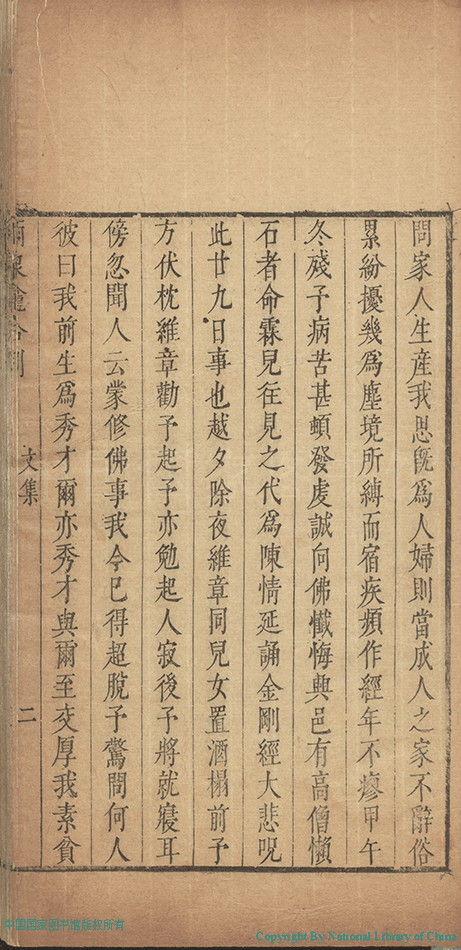 問家人生產我思旣爲人婦則當成人之家不辭俗
累紛擾幾爲塵境所縛而宿疾頻作經年不瘳甲午
冬殘予病苦甚頓發虔誠向佛懺悔興邑有高僧懶
石者命霖兒往見之代爲陳情延誦金剛經大悲呪
此廿九日事也越夕除夜維章同兒女置酒榻前予
方伏枕維章勸予起予亦勉起人寂後予將就寢耳
傍忽聞人云蒙修佛事我今已得超脫予驚問何人
彼曰我前生爲秀才爾亦秀才與爾至交厚我素貧
合刻 文集 二
中国国家图书馆版权所有
Copyright By National Library of China